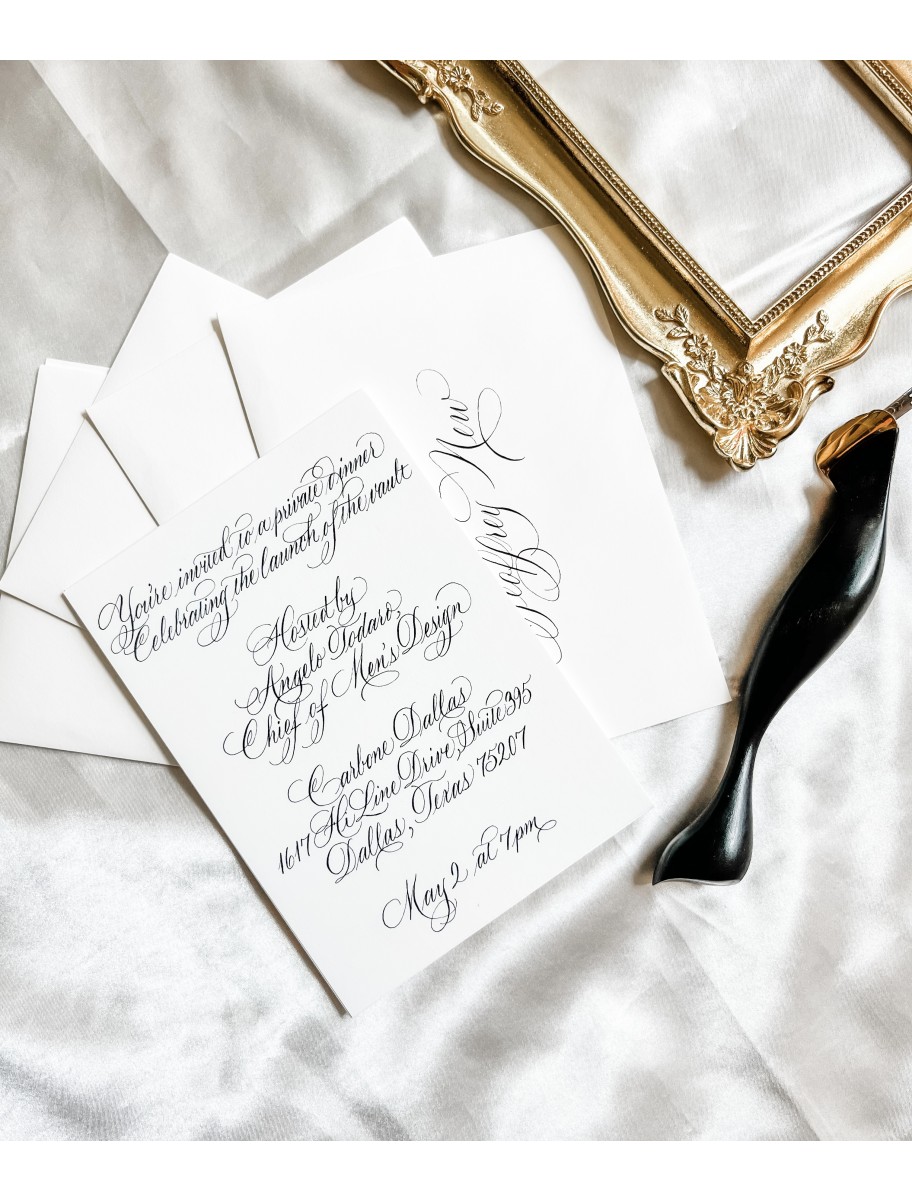 You're invited to a private dinner
Celebrating the launch of the vault
Hosted by
Angelo Todaro,
Chief of Men's Design
Carbone Dallas
1617 Hi Line Drive, Suite 395
Dallas, Texas 75207
May 2 at 7pm
New